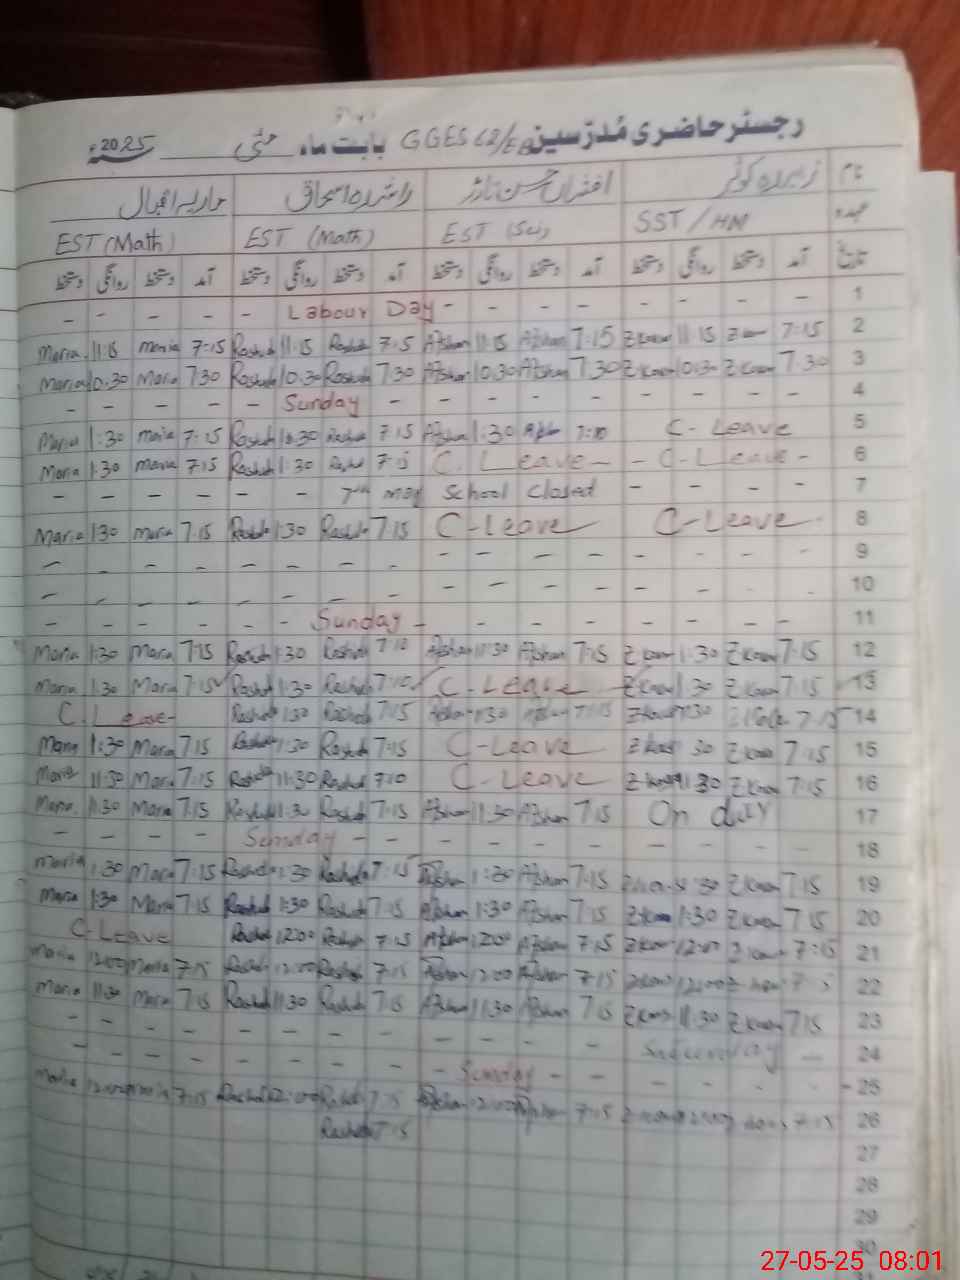 رجسٹر حاضری مُدرّسین GGES 62/EB بابت ماہ مئی 2025ء
نام زبیدہ کوثر افشاں حسن تارڑ راشدہ اسحاق ماریہ اقبال
عہدہ SST / HM EST (Sci) EST (Math) EST (Math)
تاریخ آمد دستخط روانگی دستخط آمد دستخط روانگی دستخط آمد دستخط روانگی دستخط آمد دستخط روانگی دستخط
- - - - - Labour Day - - - - - - - 1
Maria 11:15 Maria 7:15 Rashida 11:15 Rashida 7:15 Afshan 11:15 Afshan 7:15 Zkousar 11:15 7:15 2
Maria 10:30 Maria 7:30 Rashida 10:30 Rashida 7:30 Afshan 10:30 Afshan 7:30 10:30 7:30 3
- - - - - Sunday - - - - - - - - - 4
Maria 1:30 Maria 7:15 Rashida 1:30 Rashida 7:15 Afshan 1:30 C- Leave 5
Maria 1:30 Maria 7:15 Rashida 1:30 7:15 C. Leave - - C- Leave - 6
- - - - - - 7th may School Closed - - - - 7
Maria 1:30 Maria 7:15 Rashida 1:30 Rashida 7:15 C-Leave C-Leave 8
- - - - - - - - - - - - - - - - 9
- - - - - - - - - - - - - - - - 10
- - - - - - Sunday - - - - - - - - 11
Maria 1:30 Maria 7:15 Rashida 1:30 Rashida 7:10 Afshan 1:30 Afshan 7:15 1:30 7:15 12
Maria 1:30 Maria 7:15 Rashida 1:30 Rashida 7:10 C-Leave 1:30 7:15 13
C. Leave Rashida 1:30 Rashida 7:15 Afshan 1:30 Afshan 7:15 1:30 7:15 14
Maria 1:30 Maria 7:15 Rashida 1:30 Rashida 7:15 C-Leave 7:15 15
Maria 11:30 Maria 7:15 Rashida 11:30 Rashida 7:10 C-Leave 11:30 7:15 16
Maria 11:30 Maria 7:15 Rashida 11:30 Rashida 7:15 Afshan 11:30 Afshan 7:15 On duty 17
- - - - Sunday - - - - - - - - - - 18
Maria 1:30 Maria 7:15 Rashida 1:30 Rashida 7:15 Afshan 1:30 Afshan 7:15 7:15 19
Maria 1:30 Maria 7:15 Rashida 1:30 Rashida 7:15 Afshan 1:30 Afshan 7:15 1:30 7:15 20
C-Leave Rashida 12:00 Rashida 7:15 Afshan 12:00 Afshan 7:15 12:00 7:15 21
Maria 12:00 Maria 7:15 Rashida 12:00 Rashida 7:15 Afshan 12:00 Afshan 7:15 22
Maria 11:30 Maria 7:15 Rashida 11:30 Rashida 7:15 Afshan 11:30 Afshan 7:15 11:30 7:15 23
- - - - - - - - - - - - Saturday - 24
- - - - - - - - Sunday - - - - - - 25
Maria 12:00 7:15 Rashida 12:00 7:15 Afshan 12:00 7:15 7:15 26
Rashida 7:15
27
28
29
30
27-05-25 08:01